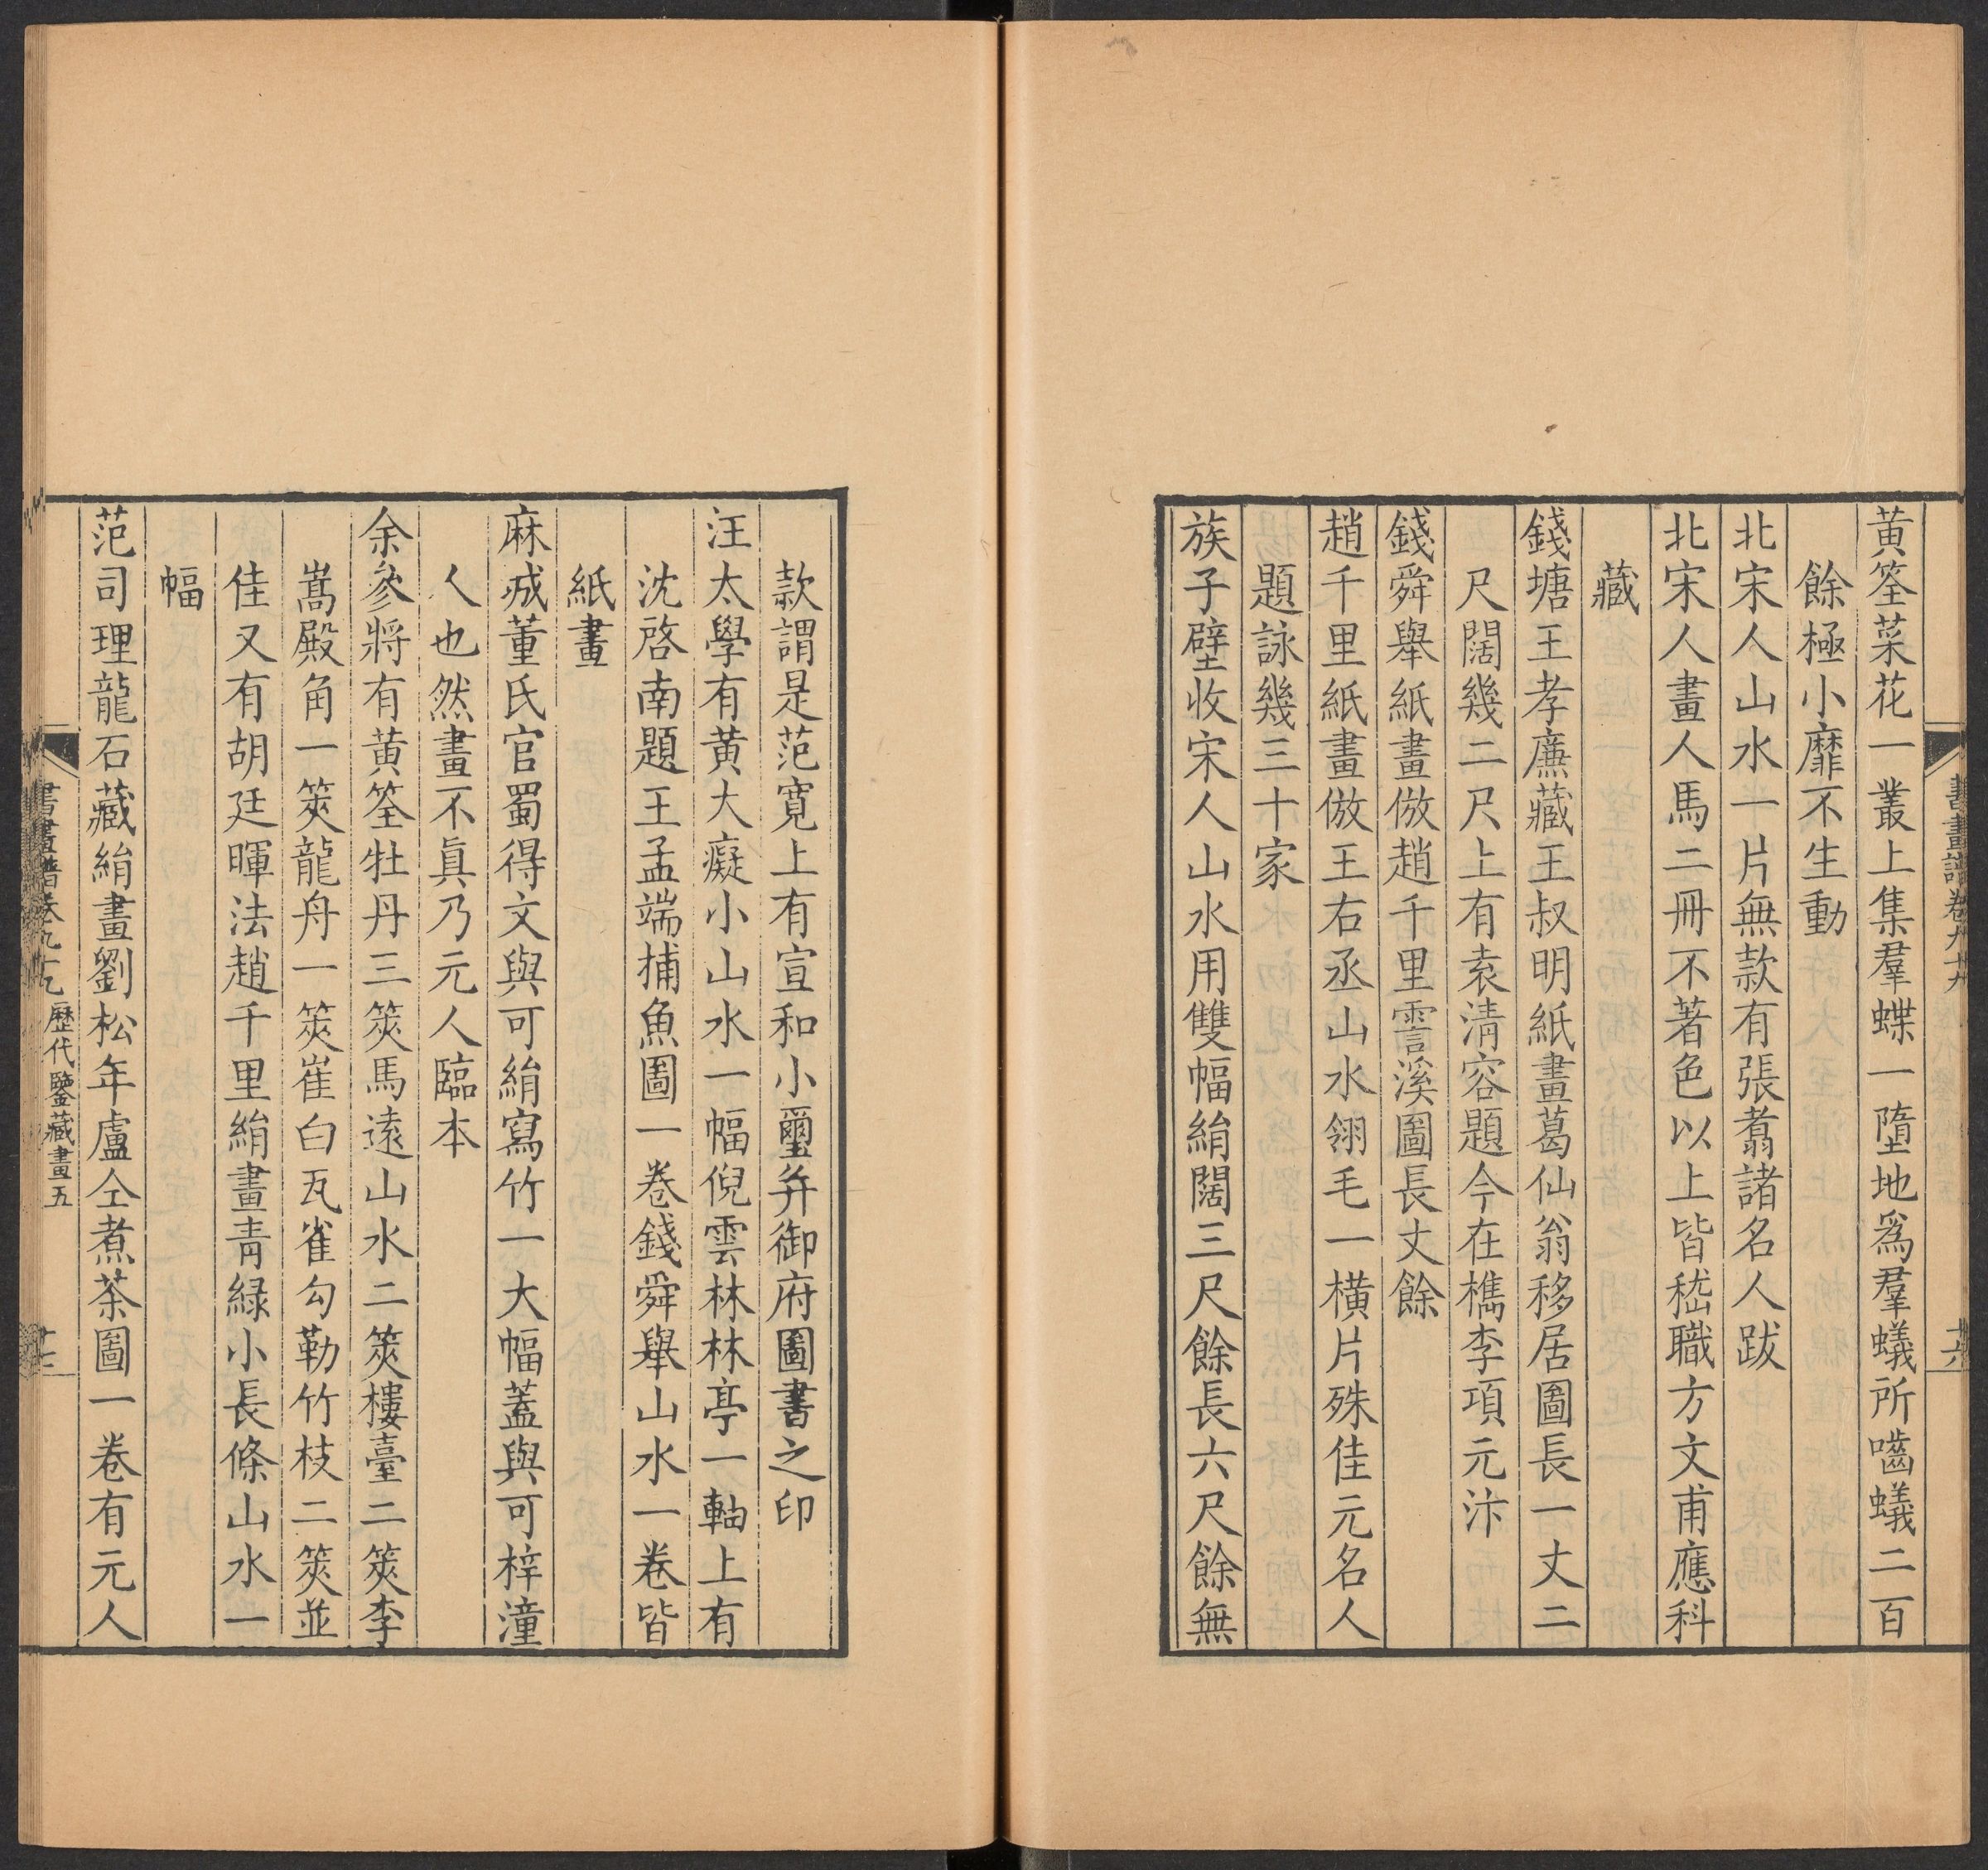 黄筌菜花一叢上集羣蝶一墮地爲羣蟻所嚙蟻二百
餘極小靡不生動
北宋人山水一片無款有張翥諸名人跋
北宋人畫人馬二冊不著色以上皆嵇職方文甫應科
藏
錢塘王孝廉藏王叔明紙畫葛仙翁移居圖長一丈二
尺闊幾二尺上有袁淸容題今在檇李項元汴
錢舜舉紙畫倣趙千里霅溪圖長丈餘
趙千里紙畫倣王右丞山水翎毛一橫片殊佳元名人
題詠幾三十家
族子壁收宋人山水用雙幅絹闊三尺餘長六尺餘無
款謂是范寛上有宣和小璽并御府圖書之印
汪太學有黄大癡小山水一幅倪雲林林亭一軸上有
沈啓南題王孟端捕魚圖一卷錢舜舉山水一卷皆
紙畫
麻城董氏官蜀得文與可絹寫竹一大幅蓋與可梓潼
人也然畫不眞乃元人臨本
余參將有黄筌牡丹三筴馬遠山水二筴樓臺二筴李
嵩殿角一筴龍舟一筴崔白瓦雀勾勒竹枝二筴並
佳又有胡廷暉法趙千里絹畫靑緑小長條山水一
幅
范司理龍石藏絹畫劉松年盧仝煮茶圖一卷有元人
歷代鑒藏畫五